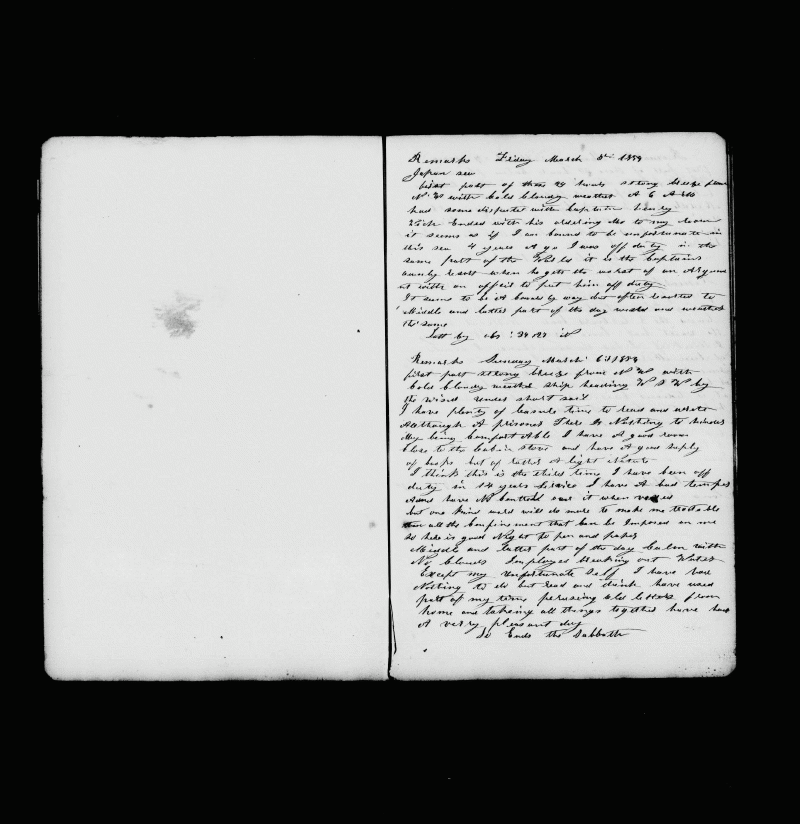 Remarks Friday March 5th 1859
Japan sea
first part of these 24 hours strong breeze from
N W with Cold Cloudy weather At 6 A M
had some dispute with Captain Henry
Wich Ended with his ordering Me to my room
it seems as if I am bound to be unfortunate in
this sea 4 years Ago I was off duty in the
same part of the World it is the Captains
resort when he gets the worst of an Argume
nt with an officer to put him off duty
It seems to be A way but often resorted to
Middle and latter part of the day wind and weather
the same
Latt by obs : 39 N
Remarks Sunday March 6th 1859
first part strong breeze from N W with
Cold Cloudy weather ship heading W S W by
the wind under short sail
I have plenty of leasure time to read and write
Allthough A prisoner There Is Nothing to hinder
My being Comfort Able I have A good room
Close to the Cabin stove and have A good suply
of books but of rather A light Nature
I think this is the third time I have been off
duty in 14 years service I have A bad temper
And have No Control over it when vexed
but one kind word will do more to make me tractable
than all the Confinement that Can be Imposed on me
So here is good Night to pen and paper
Middle and latter part of the day Calm with
No Clouds Employed breaking out Water
Except my Unfortunate Self I have had
Nothing to do but read and drink have used
part of my time perusing old letters from
home and takeing all things together have had
A verry pleasant day
So Ends the Sabbath